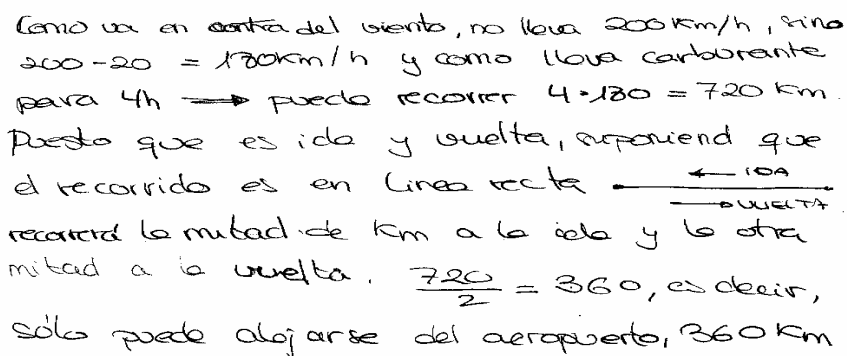 Como va en contra del viento, no lleva 200 Km/h, sino
200-20 = 180Km/h y como lleva carburante
para 4h → puede recorrer 4·180 = 720 Km.
Puesto que es ida y vuelta, suponiend que
el recorrido es en línea recta ← IDA
→ VUELTA
recorrerá la mitad de Km a la ida y la otra
mitad a la vuelta. 720/2 = 360, es decir,
sólo puede alejarse del aeropuerto, 360 Km